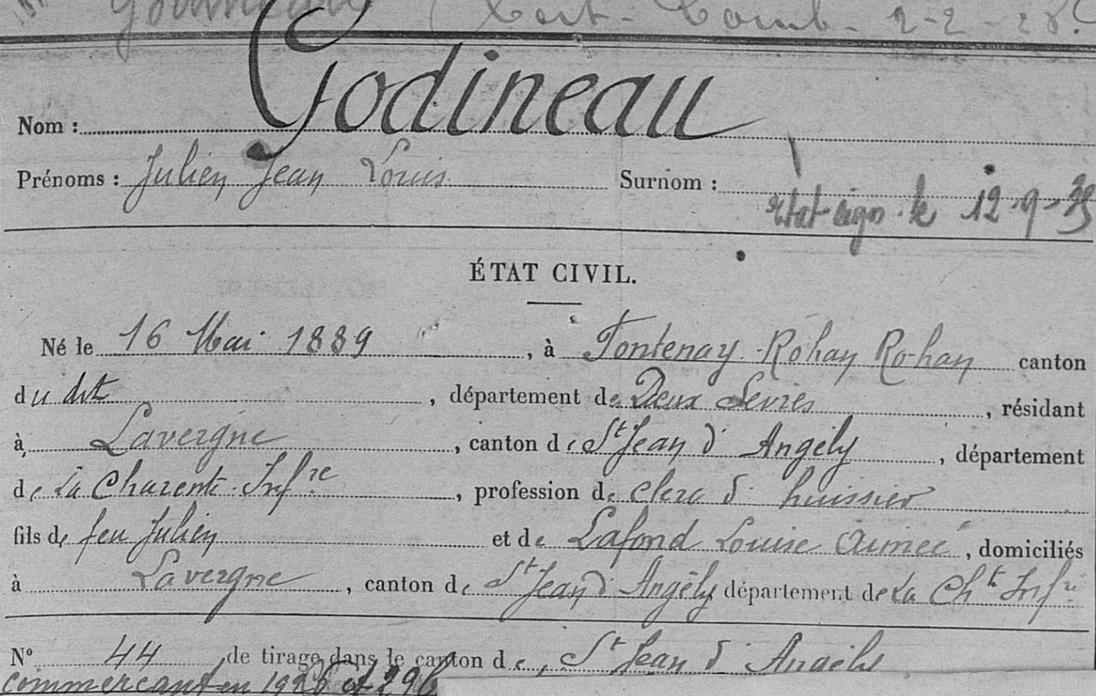 Godineau Cart. Comb. 2-2-28
Nom : Godineau
Prénoms : Julien Jean Louis Surnom :
12-9-35
ÉTAT CIVIL.
Né le 16 Mai 1889, à Fontenay Rohan Rohan canton
du dit, département de Deux Sevres, résidant
à Lavergne, canton de St Jean d'Angély, département
de la Charente Infre, profession de clerc d'huissier
fils de feu Julien et de Lafond Louise Aimée, domiciliés
à Lavergne, canton de St Jean d'Angély département de la Cht Infre
N° 44 de tirage dans le canton de St Jean d'Angély
commerçant en 1926 et 296